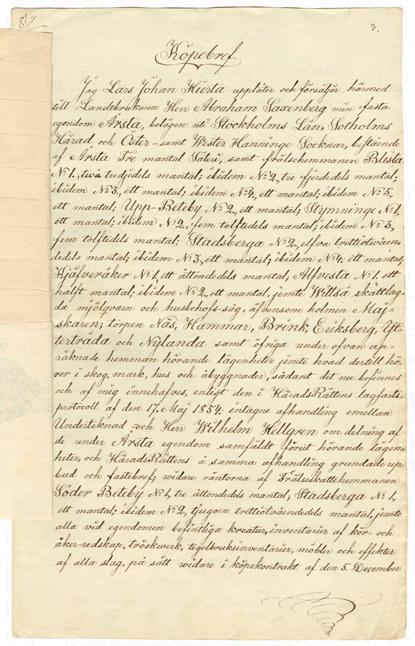 Köpebref.
Jag Lars Johan Hierta upplåter och försäljer härmed
till Landtbrukaren Herr Abraham Saxenberg min fasta
egendom Årsta, belägen uti Stockholms Län, Sotholms
Härad och Öster- samt Wester Hanninge Socknar, bestående
af Årsta Tre mantal Säteri, samt frälsehemmanen Blista
No 1, två tredjedels mantal; ibidem No 2, tre fjerdedels mantal;
ibidem No 3, ett mantal; ibidem No 4, ett mantal; ibidem No 5,
ett mantal; Upp-Beteby No 2, ett mantal; Stymninge No 1,
ett mantal; ibidem No 2, fem tolftedels mantal; ibidem No 3,
fem tolftedels mantal; Stadsberga No 2, elfva trettiotvåen-
dedels mantal; ibidem No 3, ett mantal; ibidem No 4, ett mantal;
Kjälfveråker No 1, ett åttondedels mantal; Alfvesta No 1, ett
halft mantal; ibidem No 2, ett mantal, jemte Willså skattlag-
da mjölqvarn och husbehofs-såg, äfvensom holmen Maj-
skären; torpen Näs, Hammar, Brink, Eriksberg, Ytter-
träda och Nylanda samt öfriga under ofvan upp-
räknade hemman hörande lägenheter jemte hvad dertill hör-
er i skog, mark, hus och åbyggnader, sådant det nu befinnes
och af mig innehafves, enligt den i HäradsRättens lagfarts-
protocoll af den 17 Maj 1854 intagne afhandling emellan
Undertecknad och Herr Wilhelm Hellgren om delning af
de under Årsta egendom samfäldt förut hörande lägen-
heter, och HäradsRättens å samma afhandling grundade upp-
bud och fastebref; vidare räntorna af Frälseskattehemmanen
Söder Beteby No 1, tre åttondedels mantal, Stadsberga No 1,
ett mantal; ibidem No 2, tjugoen trettiotvåendedels mantal, jemte
alla vid egendomen befintliga kreatur, inventarier af kör- och
åker-redskap, tröskverk, tegelbruksinventarier, möbler och effekter
af alla slag, på sätt vidare i köpekontrakt af den 5. December